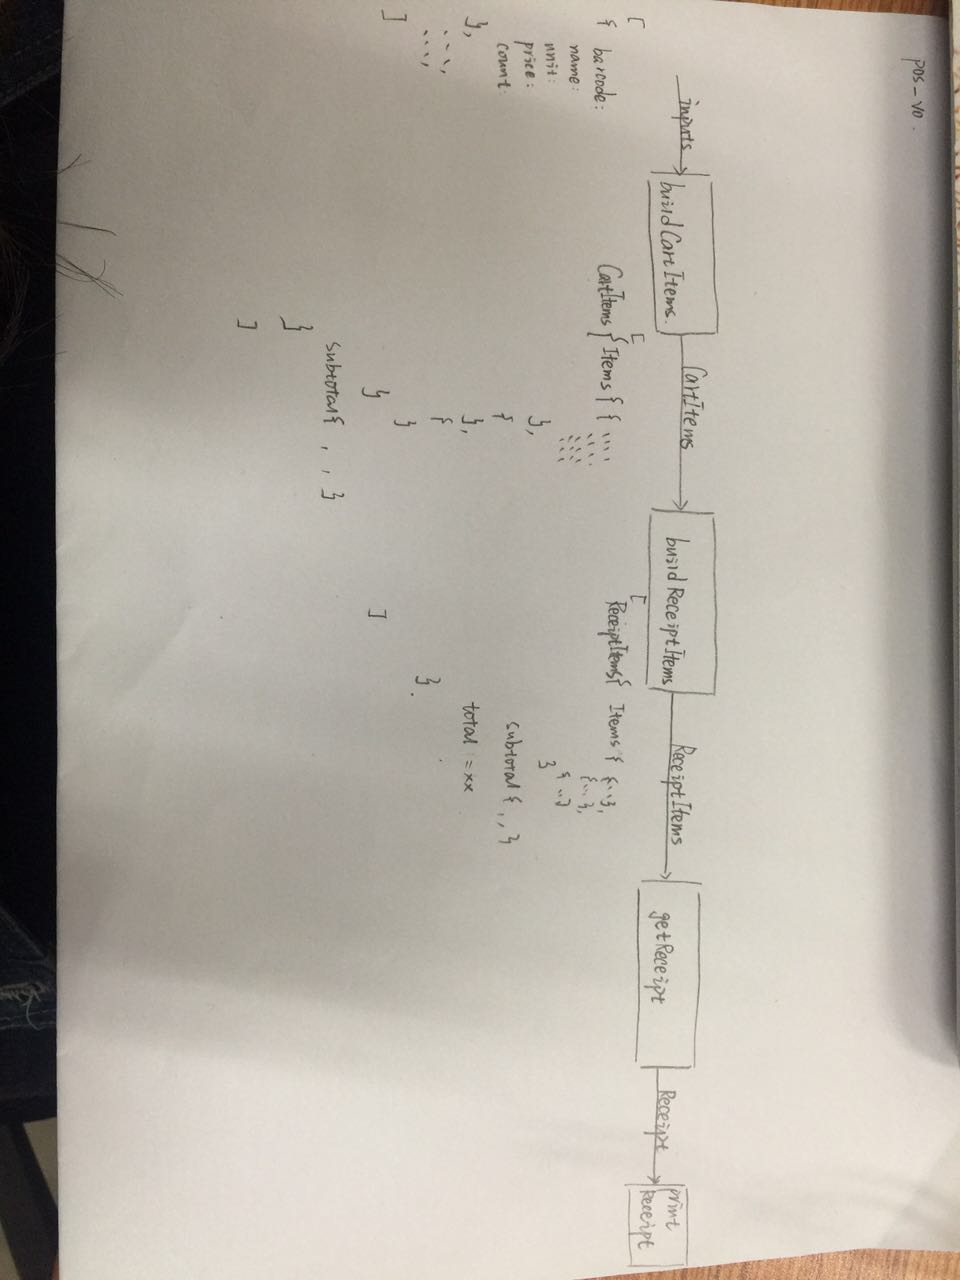 pos-v0.
inputs
buildCartItems.
CartItems
buildReceiptItems
ReceiptItems
getReceipt
Receipt
print
Receipt
[
{ barcode:
name:
unit:
price:
count:
},
....,
....,
]
[
CartItems { Items { { ....
....
....
},
{
},
{
}
}
subtotal { , , }
}
]
[
ReceiptItems{ Items { {...},
{...},
{...}
}
subtotal { , , }
total := xx
}.
]